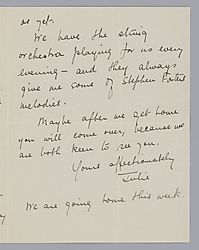 as yet.
We have the string
orchestra playing for us every
evening – and they always
give me some of Stephen Foster
melodies.
Maybe after we get home
you will come over, because we
are both keen to see you.
Yours affectionately
Julie
We are going home this week.